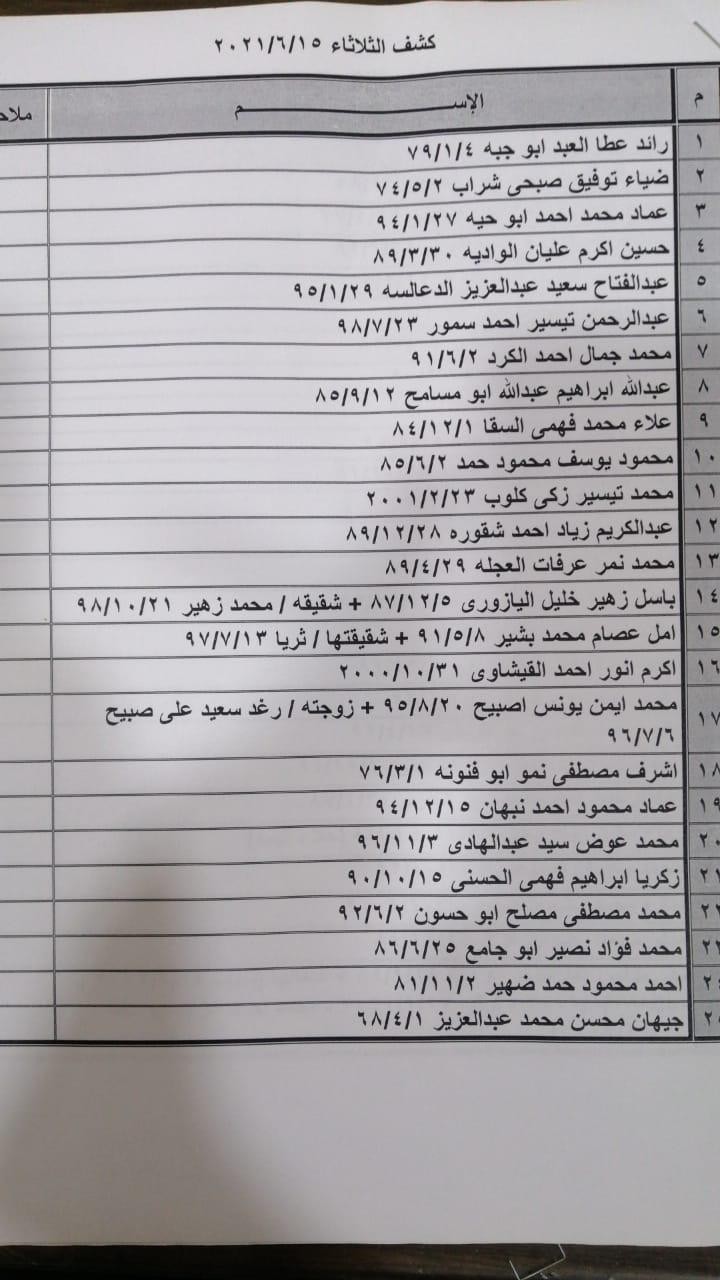 كشف الثلاثاء ٢٠٢١/٦/١٥
م الإســـــــم
١ رائد عطا العبد ابو جبه ٧٩/١/٤
٢ ضياء توفيق صبحى شراب ٧٤/٥/٢
٣ عماد محمد احمد ابو حيه ٩٤/١/٢٧
٤ حسين اكرم عليان الواديه ٨٩/٣/٣٠
٥ عبدالفتاح سعيد عبدالعزيز الدعالسه ٩٥/١/٢٩
٦ عبدالرحمن تيسير احمد سمور ٩٨/٧/٢٣
٧ محمد جمال احمد الكرد ٩١/٦/٢
٨ عبدالله ابراهيم عبدالله ابو مسامح ٨٥/٩/١٢
٩ علاء محمد فهمى السقا ٨٤/١٢/١
١٠ محمود يوسف محمود حمد ٨٥/٦/٢
١١ محمد تيسير زكى كلوب ٢٠٠١/٢/٢٣
١٢ عبدالكريم زياد احمد شقوره ٨٩/١٢/٢٨
١٣ محمد نمر عرفات العجله ٨٩/٤/٢٩
١٤ باسل زهير خليل اليازورى ٨٧/١٢/٥ + شقيقه / محمد زهير ٩٨/١٠/٢١
١٥ امل عصام محمد بشير ٩١/٥/٨ + شقيقتها / ثريا ٩٧/٧/١٣
١٦ اكرم انور احمد القيشاوى ٢٠٠٠/١٠/٣١
١٧ محمد ايمن يونس اصبيح ٩٥/٨/٢٠ + زوجته / رغد سعيد على صبيح
٩٦/٧/٦
١٨ اشرف مصطفى نمو ابو فنونه ٧٦/٣/١
١٩ عماد محمود احمد نبهان ٩٤/١٢/١٥
٢٠ محمد عوض سيد عبدالهادى ٩٦/١١/٣
٢١ زكريا ابراهيم فهمى الحسنى ٩٠/١٠/١٥
٢٢ محمد مصطفى مصلح ابو حسون ٩٢/٦/٢
٢٣ محمد فؤاد نصير ابو جامع ٨٦/٦/٢٥
٢٤ احمد محمود حمد ضهير ٨١/١١/٢
٢٥ جيهان محسن محمد عبدالعزيز ٦٨/٤/١